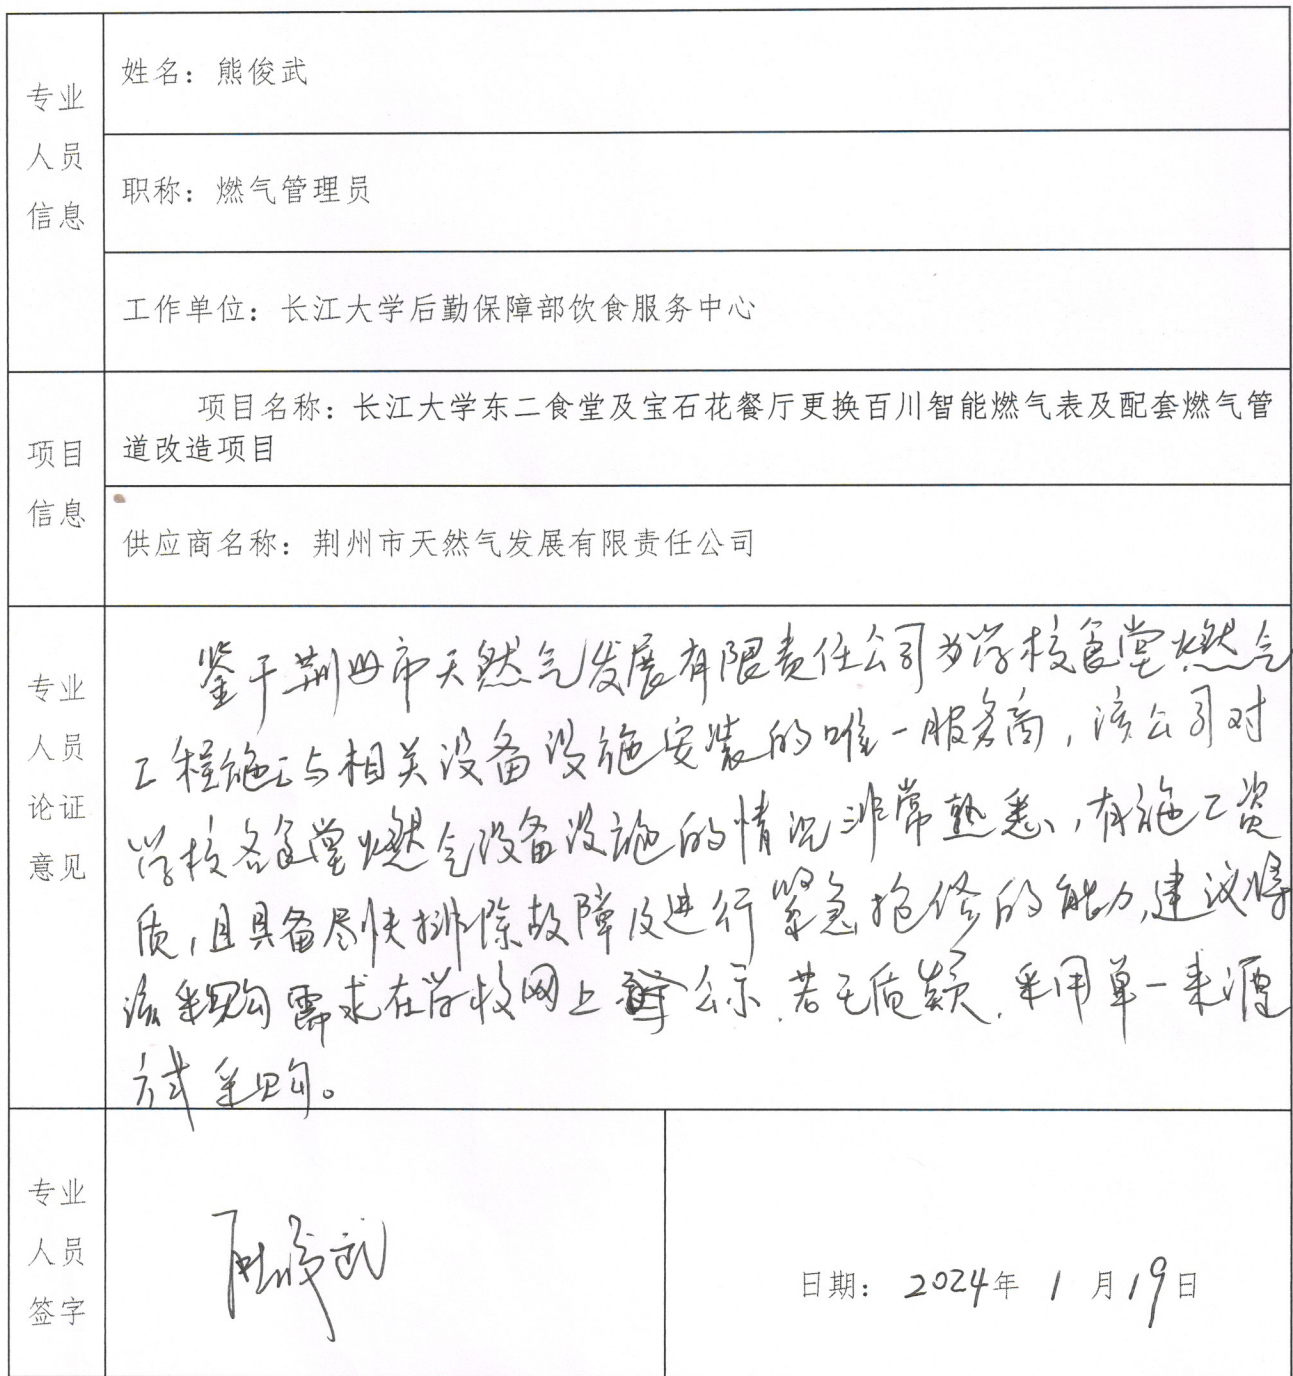 专业
人员
信息
姓名：熊俊武
职称：燃气管理员
工作单位：长江大学后勤保障部饮食服务中心
项目
信息
项目名称：长江大学东二食堂及宝石花餐厅更换百川智能燃气表及配套燃气管
道改造项目
供应商名称：荆州市天然气发展有限责任公司
专业
人员
论证
意见
鉴于荆州市天然气发展有限责任公司为学校食堂燃气
工程施工与相关设备设施安装的唯一服务商，该公司对
学校各食堂燃气设备设施的情况非常熟悉，有施工资
质，且具备尽快排除故障及进行紧急抢修的能力，建议将
该采购需求在学校网上公示，若无质疑，采用单一来源
方式采购。
专业
人员
签字
熊俊武
日期：2024年1月19日